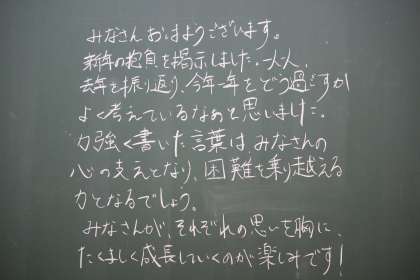 みなさんおはようございます。
新年の抱負を掲示しました。一人一人、
去年を振り返り、今年一年をどう過ごすか
よく考えているなあと思いました。
力強く書いた言葉は、みなさんの
心の支えとなり、困難を乗り越える
力となるでしょう。
みなさんが、それぞれの思いを胸に、
たくましく成長していくのが楽しみです!